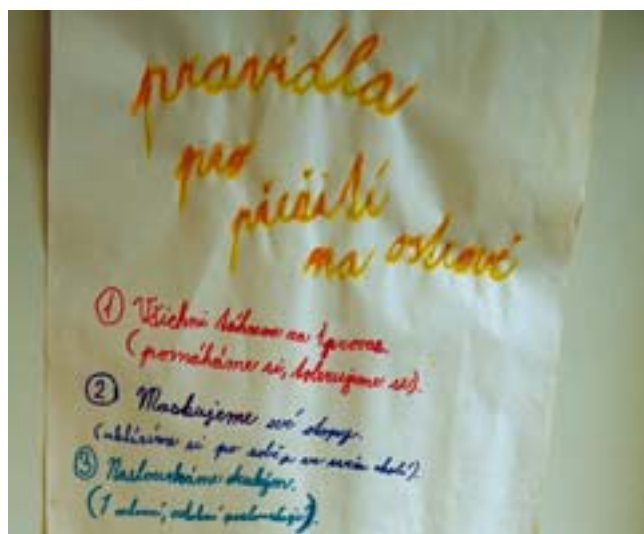 pravidla
pro
přežití
na ostrově
① Všichni táhneme za 1 provaz.
(pomáháme si, tolerujeme se).
② Maskujeme své stopy.
(uklízíme si po sobě a ve svém okolí).
③ Nasloucháme druhým.
(1 mluví, ostatní poslouchají).